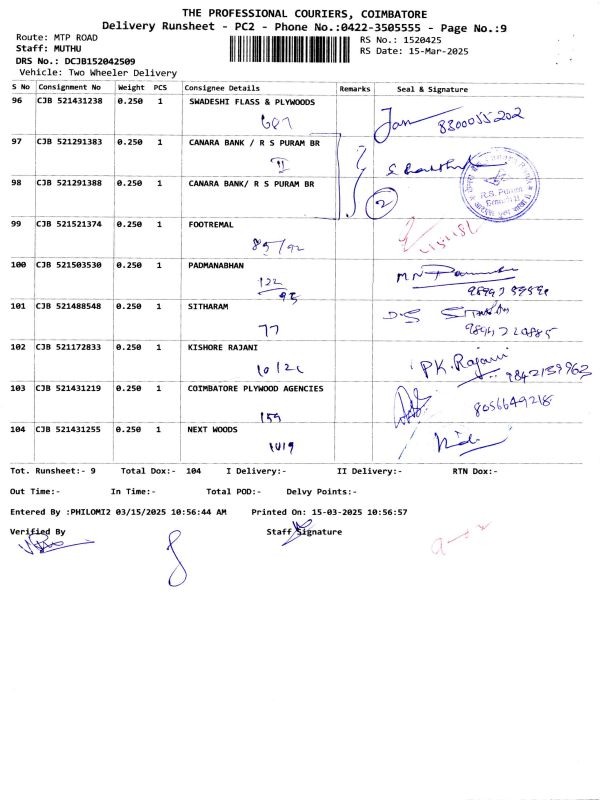 THE PROFESSIONAL COURIERS, COIMBATORE
Delivery Runsheet - PC2 - Phone No.:0422-3505555 - Page No.:9
Route: MTP ROAD
RS No.: 1520425
Staff: MUTHU
RS Date: 15-Mar-2025
DRS No.: DCJB152042509
Vehicle: Two Wheeler Delivery
S No Consignment No Weight PCS Consignee Details Remarks Seal & Signature
96 CJB 521431238 0.250 1 SWADESHI FLASS & PLYWOODS
687
8300055202
97 CJB 521291383 0.250 1 CANARA BANK / R S PURAM BR
98 CJB 521291388 0.250 1 CANARA BANK/ R S PURAM BR
2
R.S. Puram
99 CJB 521521374 0.250 1 FOOTREMAL
85/92
100 CJB 521503530 0.250 1 PADMANABHAN
122
93
101 CJB 521488548 0.250 1 SITHARAM
77
102 CJB 521172833 0.250 1 KISHORE RAJANI
10/21
PK. Rajani
9842159963
103 CJB 521431219 0.250 1 COIMBATORE PLYWOOD AGENCIES
159
8056649218
104 CJB 521431255 0.250 1 NEXT WOODS
1019
Tot. Runsheet:- 9 Total Dox:- 104 I Delivery:- II Delivery:- RTN Dox:-
Out Time:- In Time:- Total POD:- Delvy Points:-
Entered By :PHILOMI2 03/15/2025 10:56:44 AM Printed On: 15-03-2025 10:56:57
Verified By Staff Signature